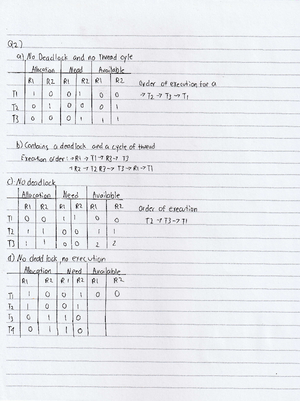 Q2)
a) No Deadlock and no Thread cycle
Allocation Need Available
R1 R2 R1 R2 R1 R2 Order of execution for a
T1 1 0 0 1 0 0 → T2 → T3 → T1
T2 0 1 0 0 0 1
T3 0 0 0 1 1 1
b) Contains a deadlock and a cycle of thread
Execution order: → R1 → T1 → R2 → T3
→ R2 → T2 R3 → T3 → R1 → T1
c) No deadlock
Allocation Need Available
R1 R2 R1 R2 R1 R2 Order of execution
T1 0 0 1 1 0 0 T2 → T3 → T1
T2 1 1 0 0 1 1
T3 1 1 0 0 2 2
d) No dead lock, no execution
Allocation Need Available
R1 R2 R1 R2 R1 R2
T1 1 0 0 1 0 0
T2 1 0 0 1
T3 0 1 1 0
T4 0 1 1 0